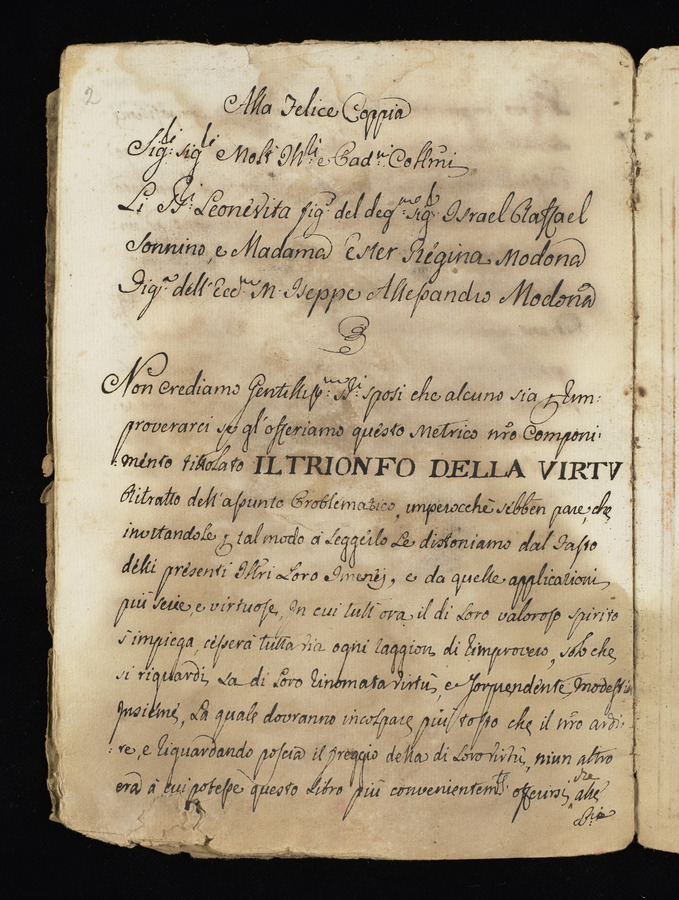 2
Alla Felice Coppia
Sig:ri Sig:ri Molt' Ill:ri e Pad:ni Coll:mi
Li SS:i Leonevita fig:o del deg:mo Sig:r Israel Raffael
Sonnino, e Madama Ester Regina Modona
Fig:a dell' Ecc:mo M. Iseppe Allessandro Modona
Non crediamo Gentiliss:mi SS:i sposi che alcuno sia p Rim:
proverarci se gl'offeriamo questo Metrico nr̃o Componi:
:mento titolato IL TRIONFO DELLA VIRTV
Ritratto dell'assunto Problematico, imperocchè sebben pare, che
invitandole p tal modo a Leggerlo Le distoniamo dal Passo
delli presenti Ill:ri Loro Imenej, e da quelle applicationi
più serie, e virtuose, In cui tutt'ora il di Loro valoroso spirito
s'impiega, cesserà tutta via ogni raggion di Rimprovero, solo che
si riguardi La di Loro rinomata virtù, e sorprendente modestia
Insieme, La quale dovranno incolpare più tosto che il nr̃o ardi:
:re, e riguardando poscia il preggio della di Loro virtù, niun altro
era a cui potesse questo Libro più convenientem:te offerirsi, che alle